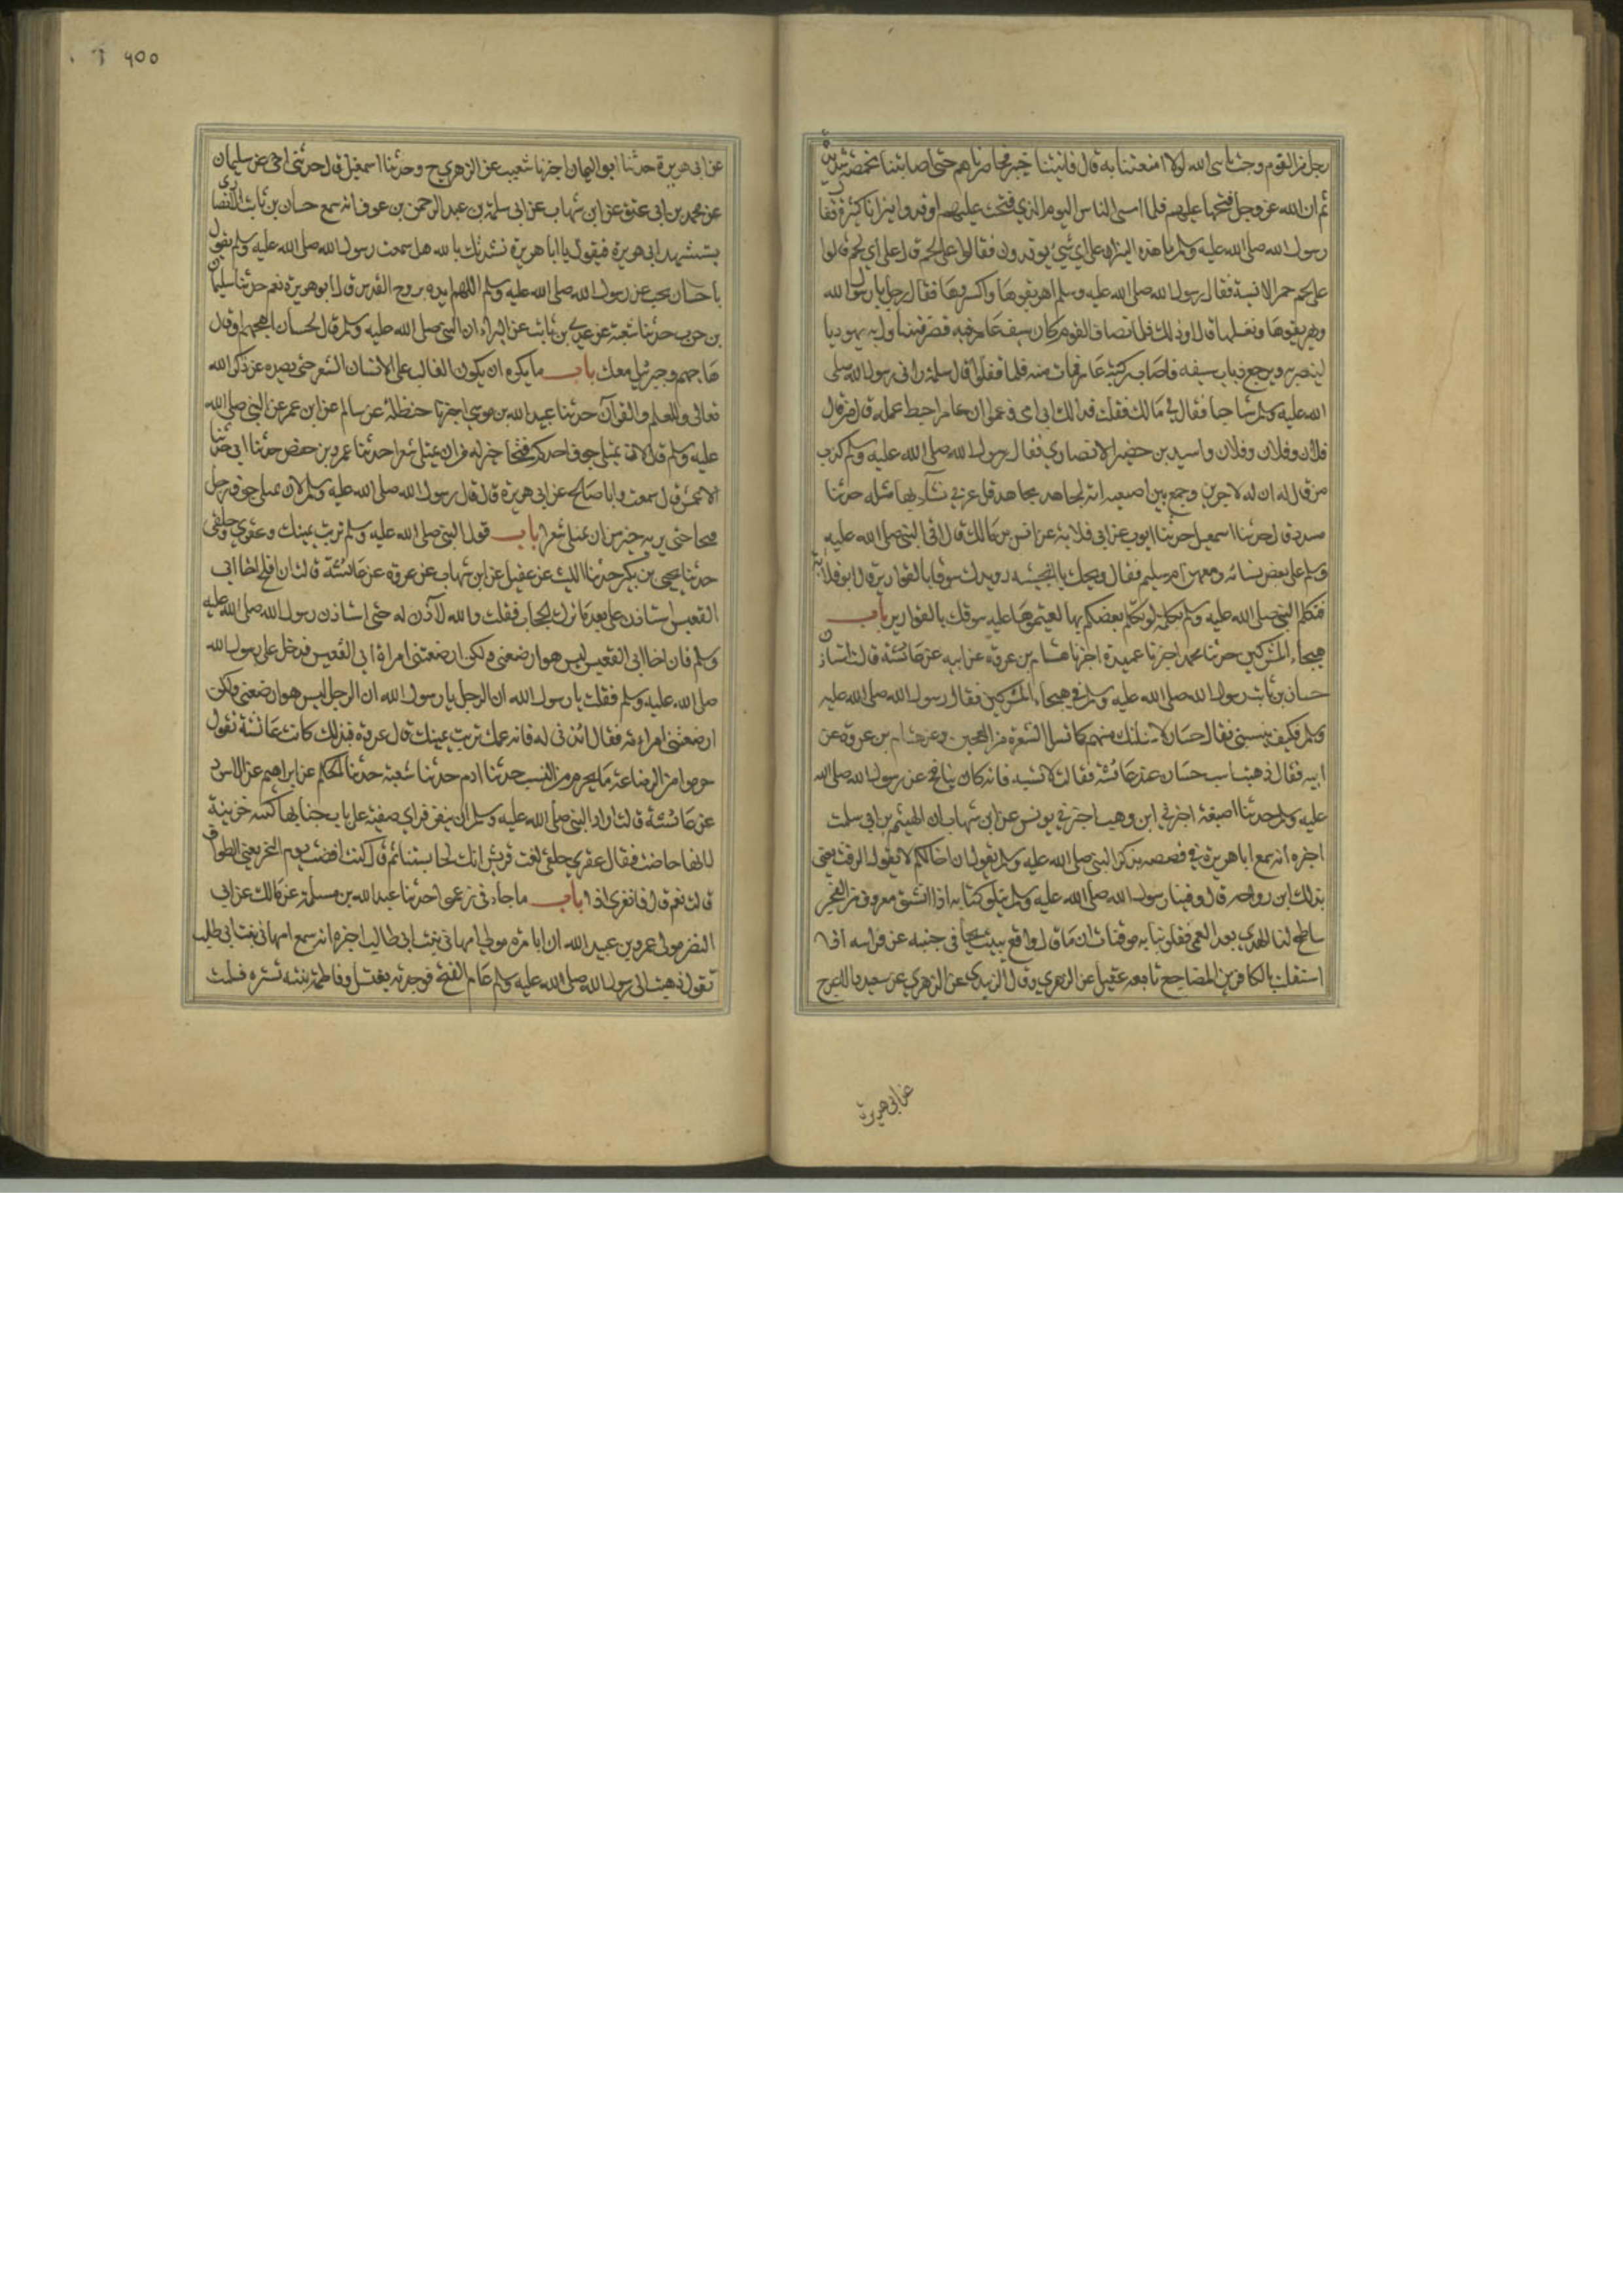 رجل من القوم وجبت يا نبي الله لولا امتعتنا به قال فاتينا خيبر فحاصرناهم حتى اصابتنا مخمصة شديدة
ثم ان الله عز وجل فتحها عليهم فلما امسى الناس اليوم الذي فتحت عليهم اوقدوا نيرانا كثيرة فقال
رسول الله صلى الله عليه وسلم ما هذه النيران على اي شيء يوقدون فقالوا على لحم قال على اي لحم قالوا
على لحم حمر الانسية فقال رسول الله صلى الله عليه وسلم اهريقوها واكسروها فقال رجل يا رسول الله
او نهريقوها ونغسلها قال او ذلك فلما تصاف القوم كان سيف عامر فيه قصر فتناول به يهوديا
ليضربه ويرجع ذباب سيفه فاصاب ركبة عامر فمات منه فلما قفلوا قال سلمة راني رسول الله صلى
الله عليه وسلم شاحبا فقال لي مالك فقلت فدا لك ابي وامي زعموا ان عامرا حبط عمله قال من قال
فلان وفلان وفلان واسيد بن حضير الانصاري فقال رسول الله صلى الله عليه وسلم كذب
من قال له ان له لاجرين وجمع بين اصبعيه انه لجاهد مجاهد قل عربي نشأ بها مثله حدثنا
مسدد قال حدثنا اسمعيل حدثنا ايوب عن ابي قلابة عن انس بن مالك قال اتى النبي صلى الله عليه
وسلم على بعض نسائه ومعهن ام سليم فقال ويحك يا انجشه رويدك سوقا بالقوارير قال ابو قلابة
فتكلم النبي صلى الله عليه وسلم بكلمة لو تكلم بعضكم بها لعبتموها عليه سوقك بالقوارير باب
هجاء المشركين حدثنا محمد اخبرنا عبدة اخبرنا هشام بن عروة عن ابيه عن عائشة قالت استاذن
حسان بن ثابت رسول الله صلى الله عليه وسلم في هجاء المشركين فقال رسول الله صلى الله عليه
وسلم فكيف بنسبي فقال حسان لاسلنك منهم كما تسل الشعرة من العجين وعن هشام بن عروة عن
ابيه فقال ذهبت اسب حسان عند عائشة فقالت لا تسبه فانه كان ينافح عن رسول الله صلى الله
عليه وسلم حدثنا اصبغ اخبرني ابن وهب اخبرني يونس عن ابن شهاب ان الهيثم بن ابي سلمت
اخبره انه سمع ابا هريرة في قصصه يذكر النبي صلى الله عليه وسلم يقول ان اخا لكم لا يقول الرفث يعني
بذلك ابن رواحه قال وفينا رسول الله صلى الله عليه وسلم يتلو كتابه اذا انشق معروف من الفجر
ساطع لنا الهدى بعد العمى فقلوبنا به موقنات ان ما قال واقع يبيت يجافي جنبه عن فراشه اذا
استقلت بالكافرين المضاجع تابعه عقيل عن الزهري وقال الزبيدي عن الزهري عن سعيد والاعرج
عن ابي هريرة
٩٥٥
عن ابي هريرة حدثنا ابو اليمان اخبرنا شعيب عن الزهري ح وحدثنا اسمعيل قال حدثني اخي عن سليمان
عن محمد بن ابي عتيق عن ابن شهاب عن ابي سلمة بن عبد الرحمن بن عوف انه سمع حسان بن ثابت الانصاري
يستشهد ابي هريرة فيقول يا ابا هريرة نشدتك بالله هل سمعت رسول الله صلى الله عليه وسلم يقول
يا حسان يجب عن رسول الله صلى الله عليه وسلم اللهم ايده بروح القدس قال ابو هريرة نعم حدثنا سليمان
بن حرب حدثنا شعبة عن عدي بن ثابت عن البراء ان النبي صلى الله عليه وسلم قال لحسان اهجهم او قال
هاجهم وجبرئيل معك باب ما يكره ان يكون الغالب على الانسان الشعر حتى يصده عن ذكر الله
تعالى والعلم والقرآن حدثنا عبيد الله بن موسى اخبرنا حنظلة عن سالم عن ابن عمر عن النبي صلى الله
عليه وسلم قال لان يمتلي جوف احدكم قيحا خير له من ان يمتلي شعرا حدثنا عمر بن حفص حدثنا ابي حدثنا
الاعمش قال سمعت ابا صالح عن ابي هريرة قال قال رسول الله صلى الله عليه وسلم لان يمتلي جوف رجل
قيحا حتى يريه خير من ان يمتلي شعرا باب قول النبي صلى الله عليه وسلم تربت يمينك وعقرى حلقى
حدثنا يحيى بن بكير حدثنا الليث عن عقيل عن ابن شهاب عن عروة عن عائشة قالت ان افلح اخا ابي
القعيس استاذن علي بعد ما نزل الحجاب فقلت والله لا آذن له حتى استاذن رسول الله صلى الله عليه
وسلم فان اخا ابي القعيس ليس هو ارضعني ولكن ارضعتني امراة ابي القعيس فدخل علي رسول الله
صلى الله عليه وسلم فقلت يا رسول الله ان الرجل يا رسول الله ان الرجل ليس هو ارضعني ولكن
ارضعتني امراته فقال ائذني له فانه عمك تربت يمينك قال عروة فبذلك كانت عائشة تقول
حرموا من الرضاعة ما يحرم من النسب حدثنا ادم حدثنا شعبة حدثنا الحكم عن ابراهيم عن الاسود
عن عائشة قالت اراد النبي صلى الله عليه وسلم ان ينفر فراي صفية على باب خبايها كئيبة حزينة
لانها حاضت فقال عقرى حلقى لغت قريش انك لحابستنا ثم قال كنت افضت يوم النحر يعني الطواف
قالت نعم قال فانفري اذا باب ما جاء في زعموا حدثنا عبد الله بن مسلمة عن مالك عن ابي
النضر مولى عمر بن عبيد الله ان ابا مره مولى ام هاني بنت ابي طالب اخبره انه سمع ام هاني بنت ابي طالب
تقول ذهبت الى رسول الله صلى الله عليه وسلم عام الفتح فوجدته يغتسل وفاطمة بنته تستره فسلمت